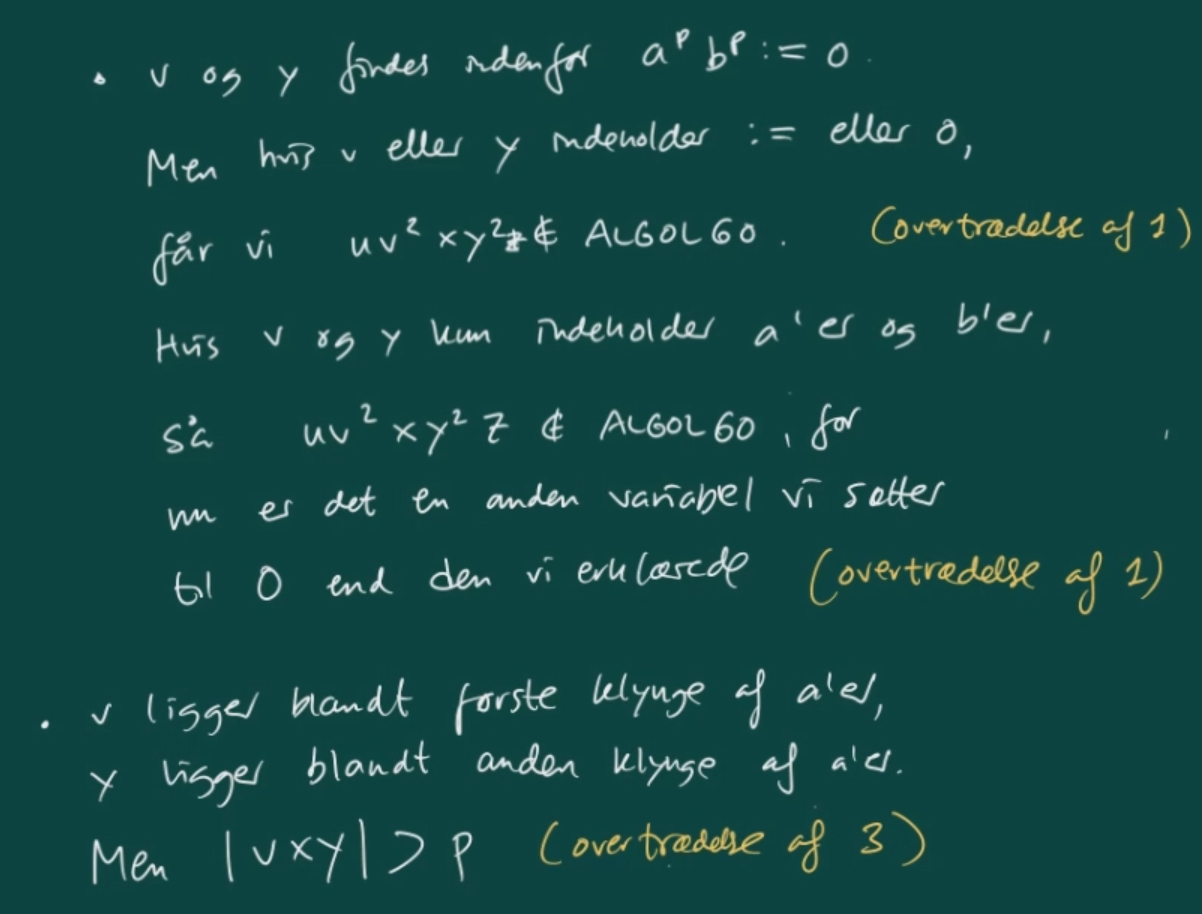 • v og y findes indenfor aᵖ bᵖ := 0.
Men hvis v eller y indeholder := eller 0,
får vi uv² xy²z ∉ ALGOL60. (overtrædelse af 1)
Hvis v og y kun indeholder a'er og b'er,
så uv² xy² z ∉ ALGOL60, for
nu er det en anden variabel vi sætter
til 0 end den vi erklærede (overtrædelse af 1)
• v ligger blandt første klynge af a'er,
y ligger blandt anden klynge af a'er.
Men |vxy| > p (overtrædelse af 3)